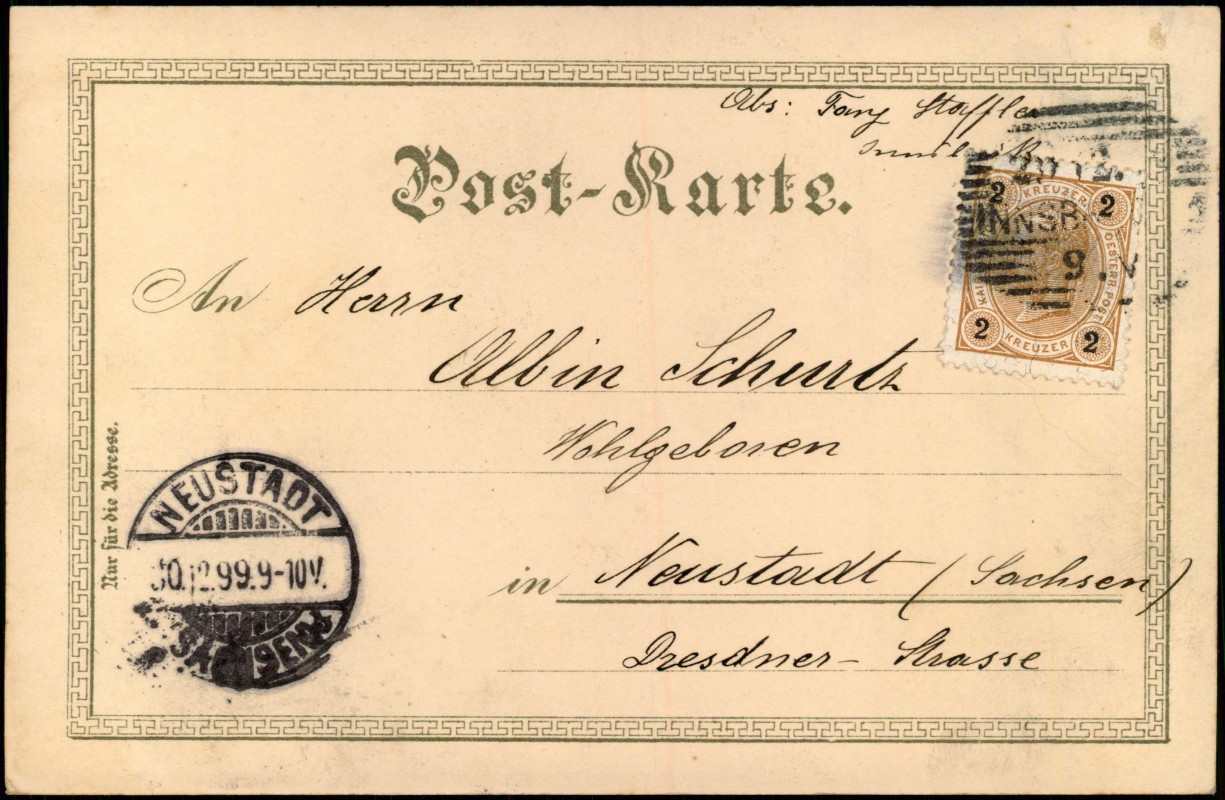 Abs: Fany Staffler
Post-Karte.
2 KREUZER 2
INNSB
OESTERR. POST
9
2 KREUZER 2
An Herrn
Albin Schurtz
Wohlgeboren
Nur für die Adresse.
NEUSTADT
30.12.99.9-10V.
SACHSEN
in Neustadt (Sachsen)
Dresdner- Strasse